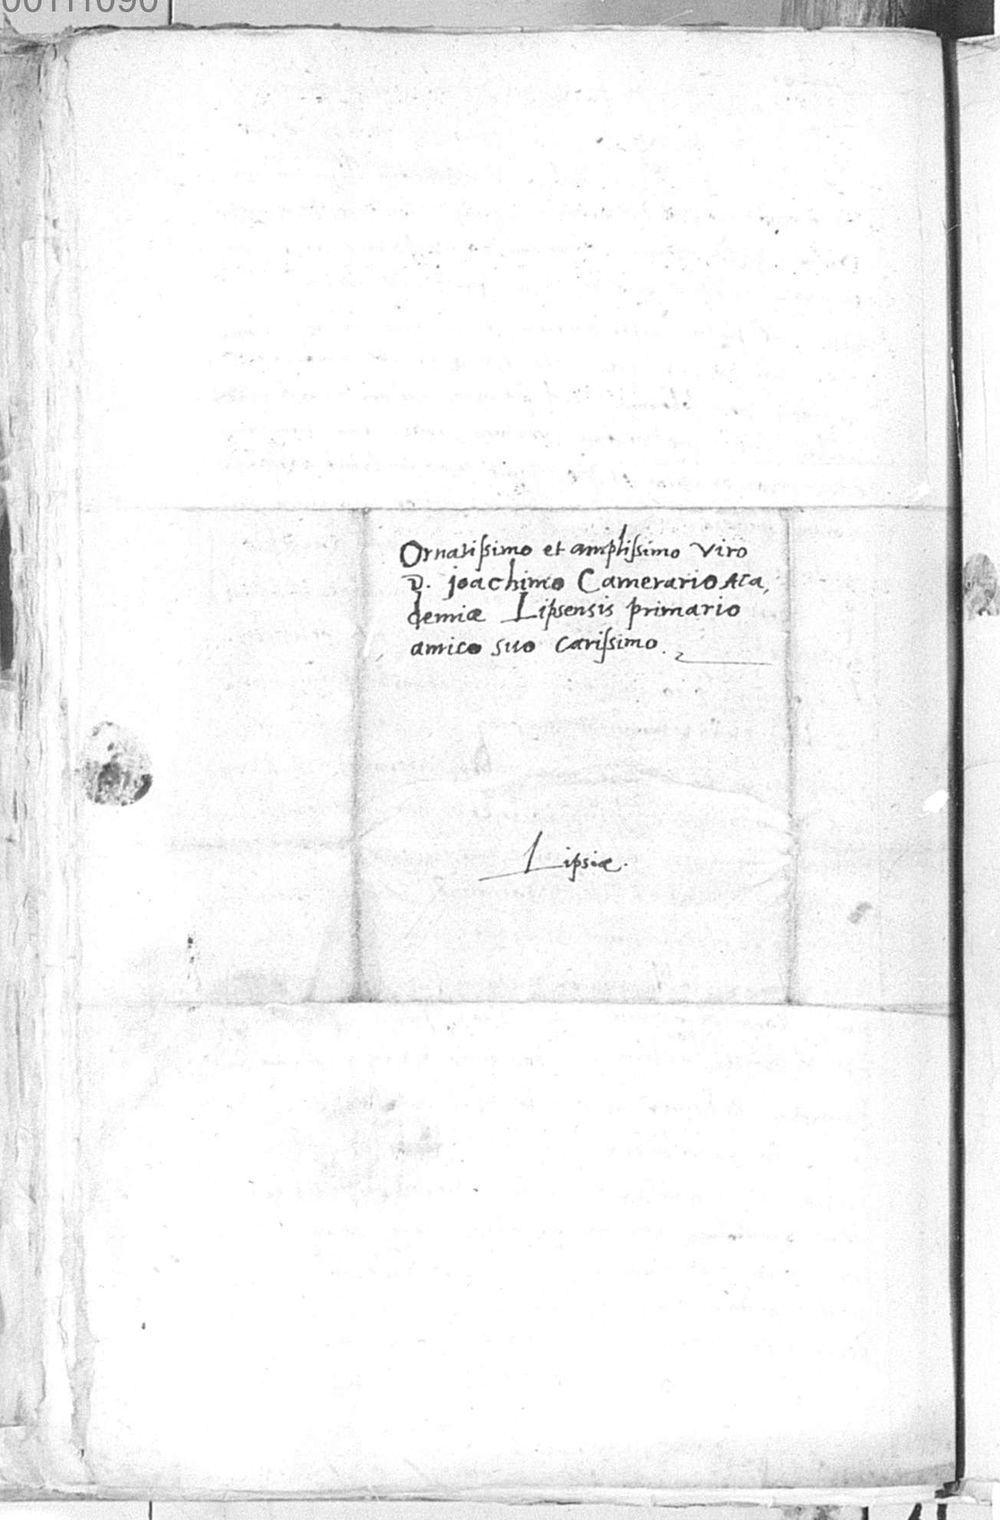 Ornatissimo et amplissimo viro
D. joachimo Camerario Aca,
demiæ Lipsensis primario
amico suo carissimo.
Lipsiæ.